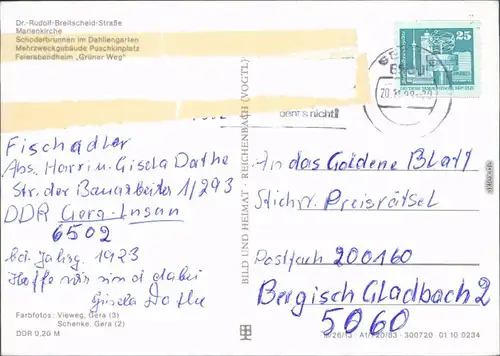 Dr.-Rudolf-Breitscheid-Straße
Marienkirche
Schoderbrunnen im Dahliengarten
Mehrzweckgebäude Puschkinplatz
Feierabendheim „Grüner Weg"
25
20.11
geht's nicht!
Fischadler
Abs. Harri u. Gisela Dathe
Str. der Bauarbeiter 1/293
DDR Gera-Lusan
6502
bd. Jahrg. 1923
Hoffe wir sind dabei
Gisela Dathe
Farbfotos: Vieweg, Gera (3)
Schenke, Gera (2)
DDR 0,20 M
BILD UND HEIMAT · REICHENBACH (VOGTL)
An das Goldene Blatt
Stichw. Preisrätsel
Postfach 200160
Bergisch Gladbach 2
5060
A1/720/83 · 300720 01 10 0234